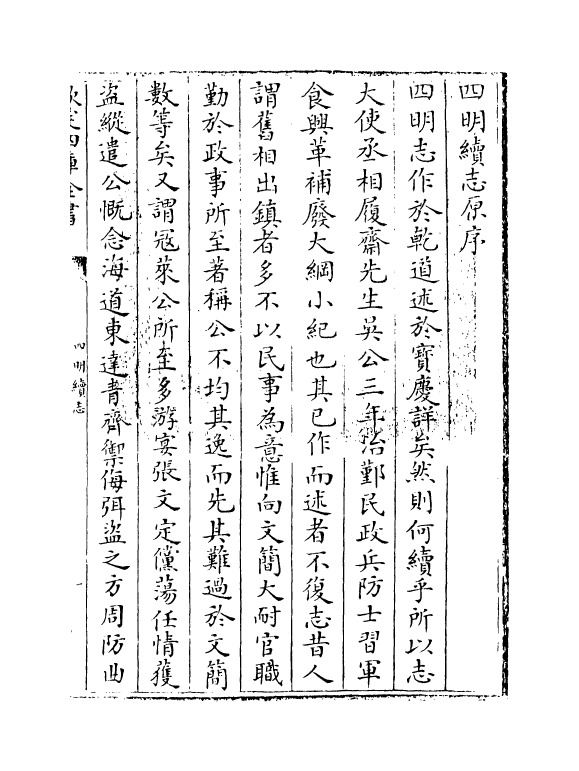 四明續志原序
四明志作於乾道述於寳慶詳矣然則何續乎所以志
大使丞相履齋先生吳公三年治鄞民政兵防士習軍
食興革補廢大綱小紀也其已作而述者不復志昔人
謂舊相出鎮者多不以民事為意惟向文簡大耐官職
勤於政事所至著稱公不均其逸而先其難過於文簡
數等矣又謂冦萊公所至多游宴張文定儻蕩任情獲
盜縱遣公慨念海道東達青齊禦侮弭盜之方周防曲
欽定四庫全書
四明續志